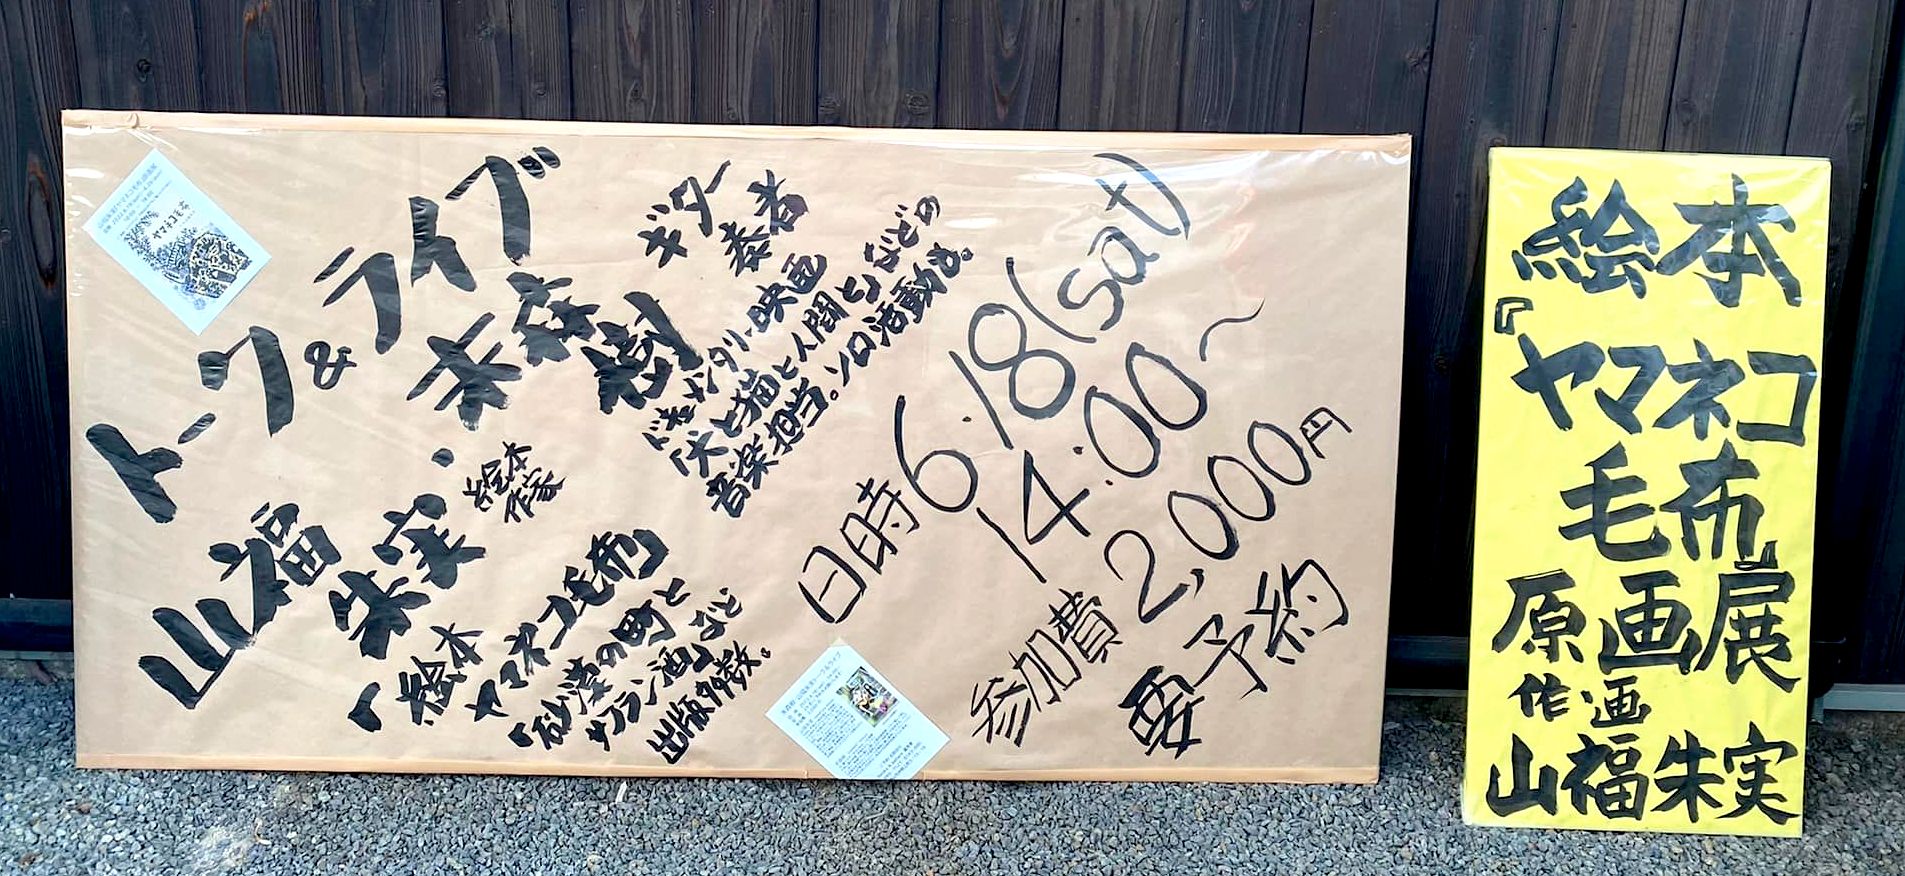 トーク&ライブ
末森
樹
ギター
奏者
ドキュメンタリー映画
『犬と猫と人間と』などの
音楽担当。ソロ活動も。
山福
朱実
絵本
作家
絵本
『ヤマネコ毛布』
『砂漠の町と
サフラン酒』など
出版多数。
日時 6.18(sat)
14:00〜
参加費 2,000円
要予約
ヤマネコ毛布
絵本
『ヤマネコ
毛布』
原画展
作・画
山福朱実